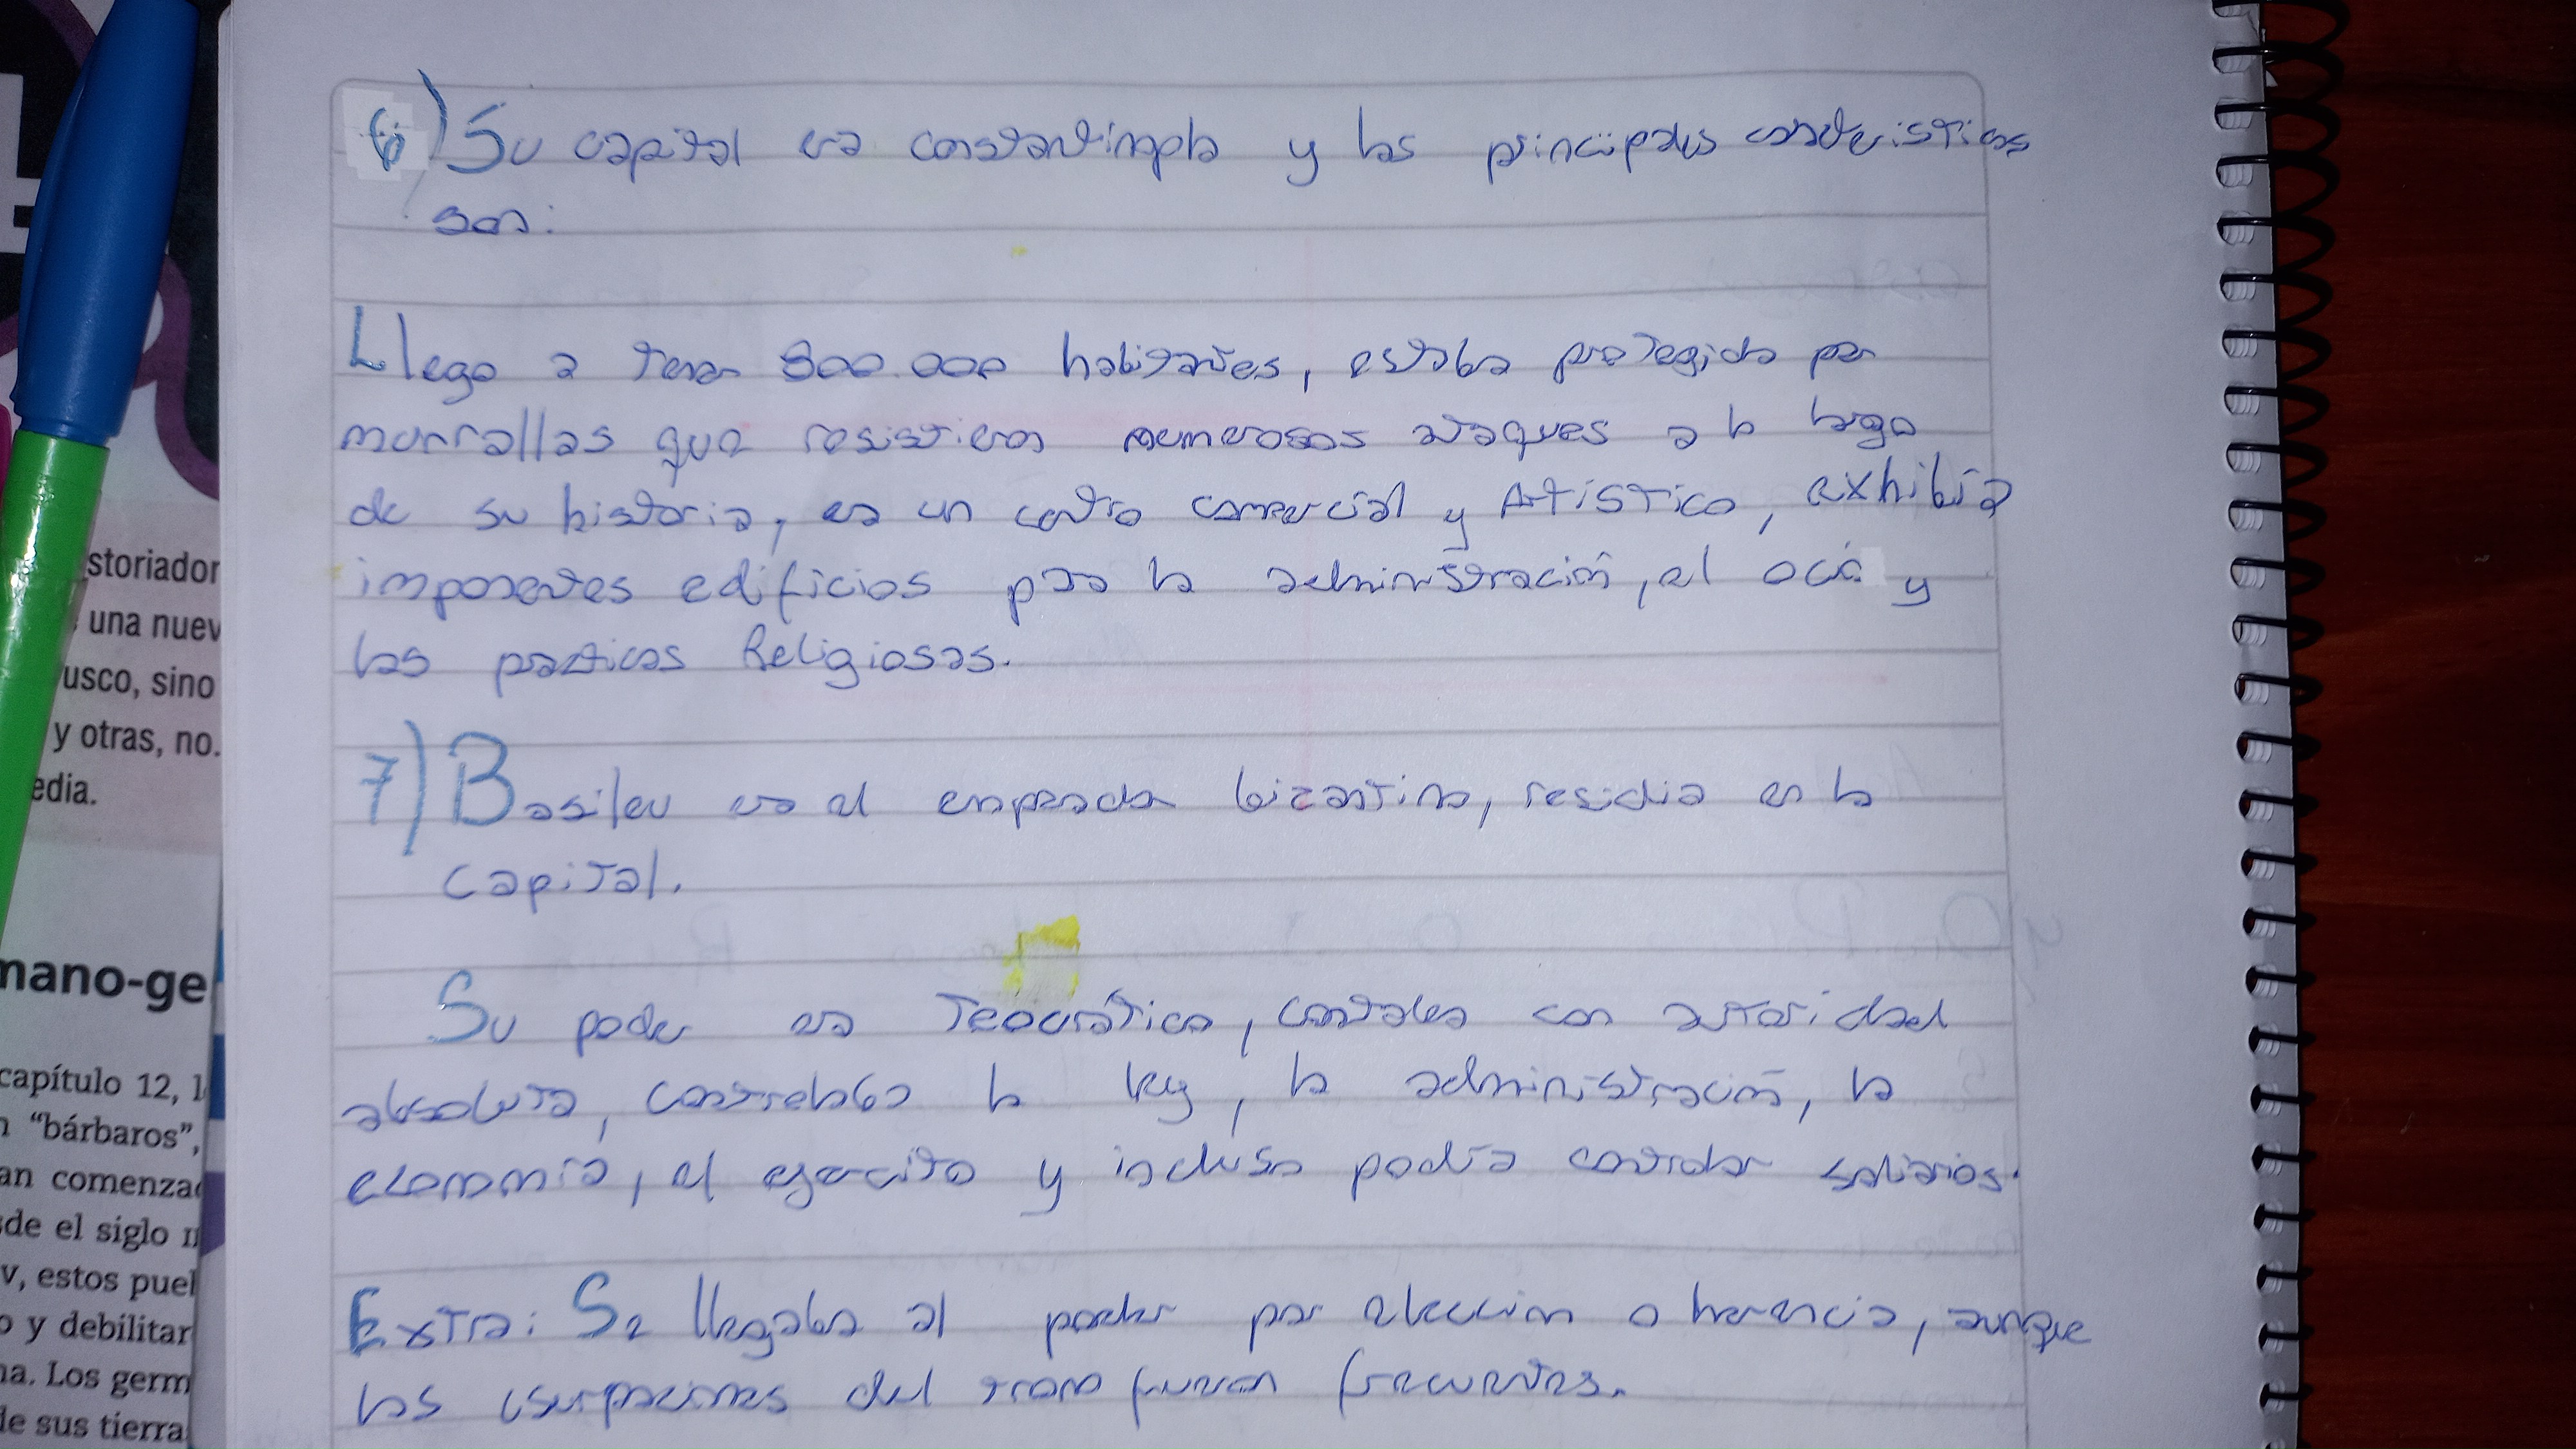 6) Su capital era constantinopla y las principales caracteristicas
son:
Llego a tener 800.000 habitantes, estaba protegida por
murrallas que resistieron numerosos ataques a lo largo
de su historia, era un centro comercial y Artístico, exhibía
imponentes edificios para la administración, el ocio y
las practicas Religiosas.
7) Basileu era el emperador bizantino, residia en la
capital.
Su poder era Teocrático, contaba con autoridad
absoluta, controlaba la ley, la administración, la
economía, el ejercito y incluso podía controlar salarios.
Extra: Se llegaba al poder por elección o herencia, aunque
las usurpaciones del trono fueron frecuentes.
storiador
una nuev
usco, sino
y otras, no.
edia.
mano-ge
capítulo 12, l
n “bárbaros”,
an comenza
sde el siglo II
v, estos puel
o y debilitar
na. Los germ
de sus tierra